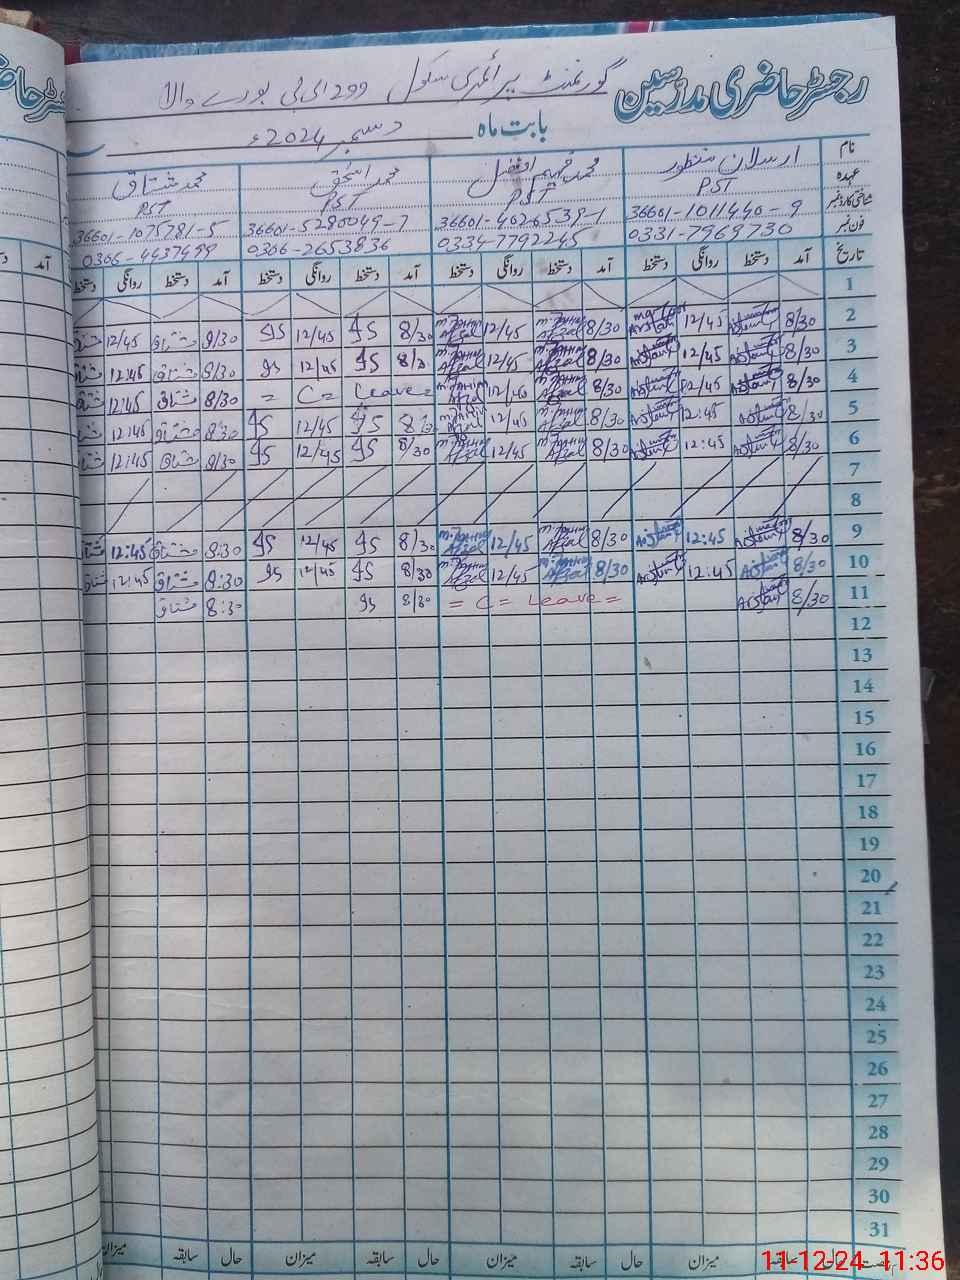 رجسٹر حاضری مدرسین گورنمنٹ پرائمری سکول ای بی بورے والا
بابت ماہ دسمبر 2024ء
نام ارسلان منظور محمد فہیم افضل محمد اسحٰق محمد مشتاق
عہدہ PST PST PST PST
شناختی کارڈ نمبر 36601-1011440-9 36601-4026539-1 36601-5280049-7 36601-1075781-5
فون نمبر 0331-7969730 0334-7792245 0306-2653836 0306-4437499
تاریخ آمد دستخط روانگی دستخط آمد دستخط روانگی دستخط آمد دستخط روانگی دستخط آمد دستخط روانگی دستخط
1
2 8/30 Arslan 12/45 Arslan 8/30 m.Fahim Afzal 12/45 m.Fahim Afzal 8/30 IS 12/45 IS 8/30 مشتاق 12/45 مشتاق
3 8/30 Arslan 12/45 Arslan 8/30 m.Fahim Afzal 12/45 m.Fahim Afzal 8/30 IS 12/45 IS 8/30 مشتاق 12:45 مشتاق
4 8/30 Arslan 12/45 Arslan 8/30 m.Fahim Afzal 12/45 m.Fahim Afzal = C = Leave = 8/30 مشتاق 12:45 مشتاق
5 8/30 Arslan 12:45 Arslan 8/30 m.Fahim Afzal 12/45 m.Fahim Afzal 8/30 IS 12/45 IS 8:30 مشتاق 12:45 مشتاق
6 8/30 Arslan 12:45 Arslan 8/30 m.Fahim Afzal 12/45 m.Fahim Afzal 8/30 IS 12/45 IS 8/30 مشتاق 12:45 مشتاق
7
8
9 8/30 Arslan 12:45 Arslan 8/30 m.Fahim Afzal 12/45 m.Fahim Afzal 8/30 IS 12/45 IS 8:30 مشتاق 12:45 مشتاق
10 8/30 Arslan 12:45 Arslan 8/30 m.Fahim Afzal 12/45 m.Fahim Afzal 8/30 IS 12/45 IS 8:30 مشتاق 12:45 مشتاق
11 8/30 Arslan = C = Leave = 8/30 IS 8:30 مشتاق
12
13
14
15
16
17
18
19
20
21
22
23
24
25
26
27
28
29
30
31
حال سابقہ میزان حال سابقہ میزان حال سابقہ میزان حال سابقہ میزان
11-12-24 11:36